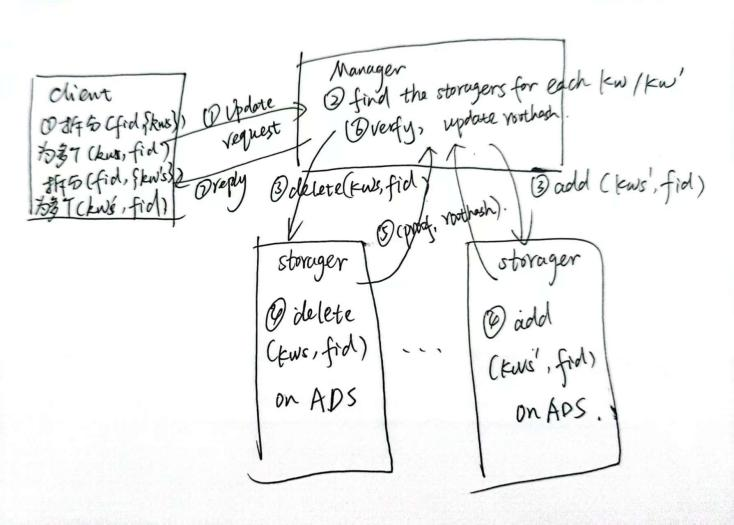 client
①拆分(fid,{kws})
为多个(kws,fid)
拆分(fid,{kw's})
为多个(kws',fid)
① Update
request
⑦reply
Manager
② find the storagers for each kw/kw'
⑥ verfy, update roothash.
③delete(kws,fid)
③ add (kws',fid)
⑤(proof, roothash).
storager
④ delete
(kws,fid)
on ADS
...
storager
④ add
(kws',fid)
on ADS.